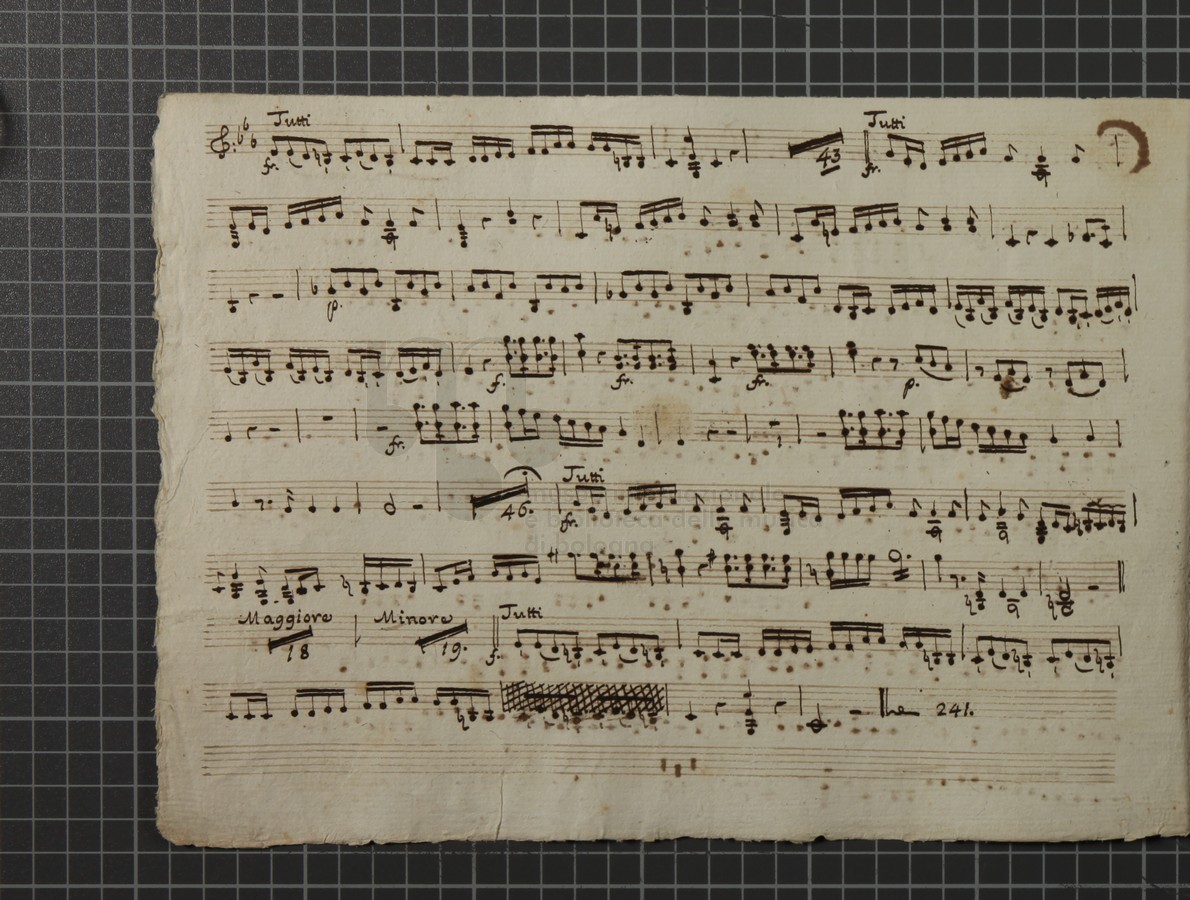 Tutti fr. 43 Tutti fr.
p.
f. fr. fr. p.
fr.
46. Tutti fr.
Maggiore 18 Minore 19. Tutti f.
241.
e biblioteca della musica
di bologna